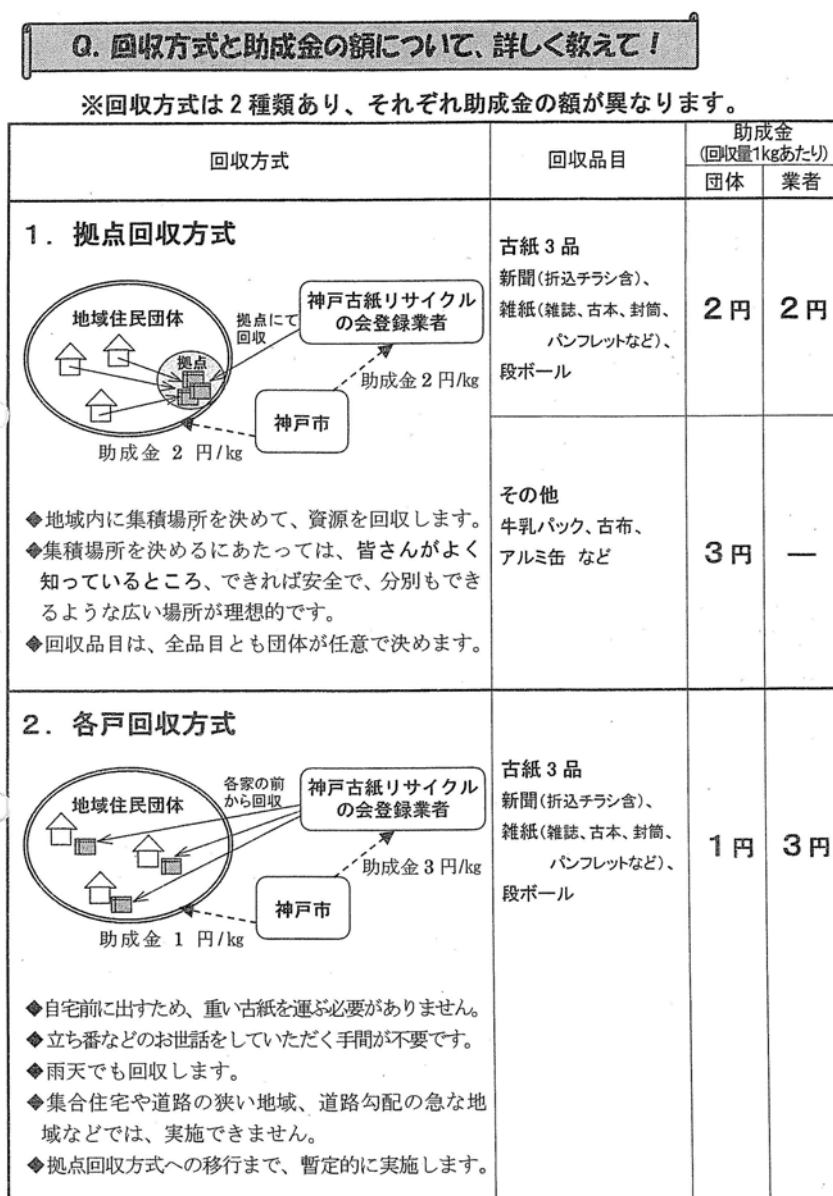 Q. 回収方式と助成金の額について、詳しく教えて！
※回収方式は2種類あり、それぞれ助成金の額が異なります。
回収方式
回収品目
助成金
(回収量1kgあたり)
団体
業者
1．拠点回収方式
地域住民団体
拠点
拠点にて
回収
神戸古紙リサイクル
の会登録業者
助成金 2 円/kg
神戸市
助成金 2 円/kg
◆地域内に集積場所を決めて、資源を回収します。
◆集積場所を決めるにあたっては、皆さんがよく
知っているところ、できれば安全で、分別もでき
るような広い場所が理想的です。
◆回収品目は、全品目とも団体が任意で決めます。
古紙3品
新聞(折込チラシ含)、
雑紙(雑誌、古本、封筒、
パンフレットなど)、
段ボール
2円
2円
その他
牛乳パック、古布、
アルミ缶 など
3円
―
2．各戸回収方式
地域住民団体
各家の前
から回収
神戸古紙リサイクル
の会登録業者
助成金 3 円/kg
神戸市
助成金 1 円/kg
◆自宅前に出すため、重い古紙を運ぶ必要がありません。
◆立ち番などのお世話をしていただく手間が不要です。
◆雨天でも回収します。
◆集合住宅や道路の狭い地域、道路勾配の急な地
域などでは、実施できません。
◆拠点回収方式への移行まで、暫定的に実施します。
古紙3品
新聞(折込チラシ含)、
雑紙(雑誌、古本、封筒、
パンフレットなど)、
段ボール
1円
3円